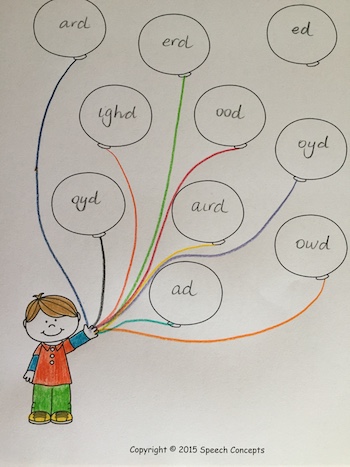 ard
erd
ed
ighd
ood
oyd
ayd
aird
owd
ad
Copyright © 2015 Speech Concepts